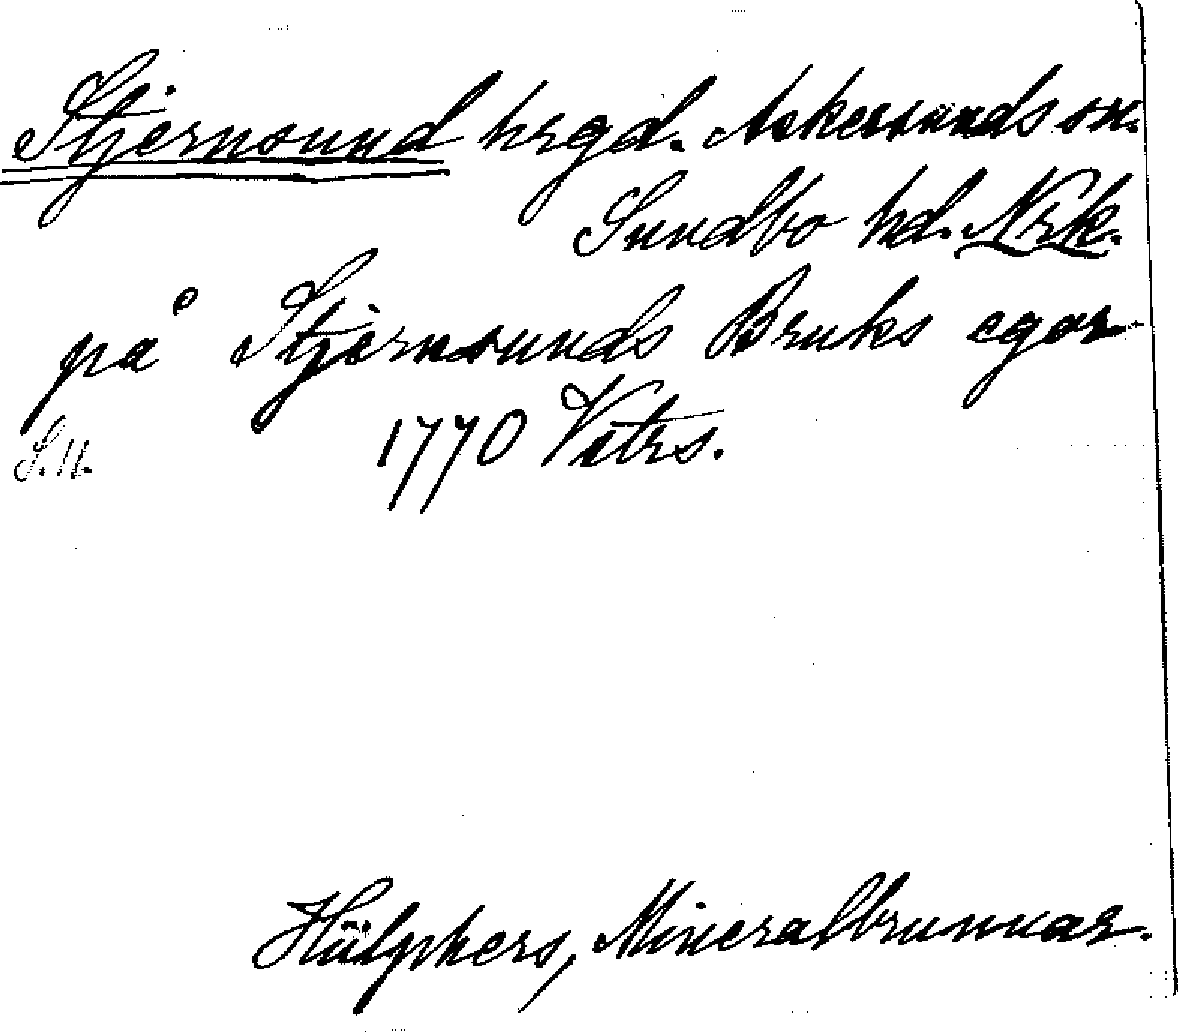 Stjernsund hrgd. Askersunds sn.
Sundbo hd. Nrk.
på Stjernsunds Bruks egor
S.H. 1770 Vatrs.
Hülphers, Mineralbrunnar.